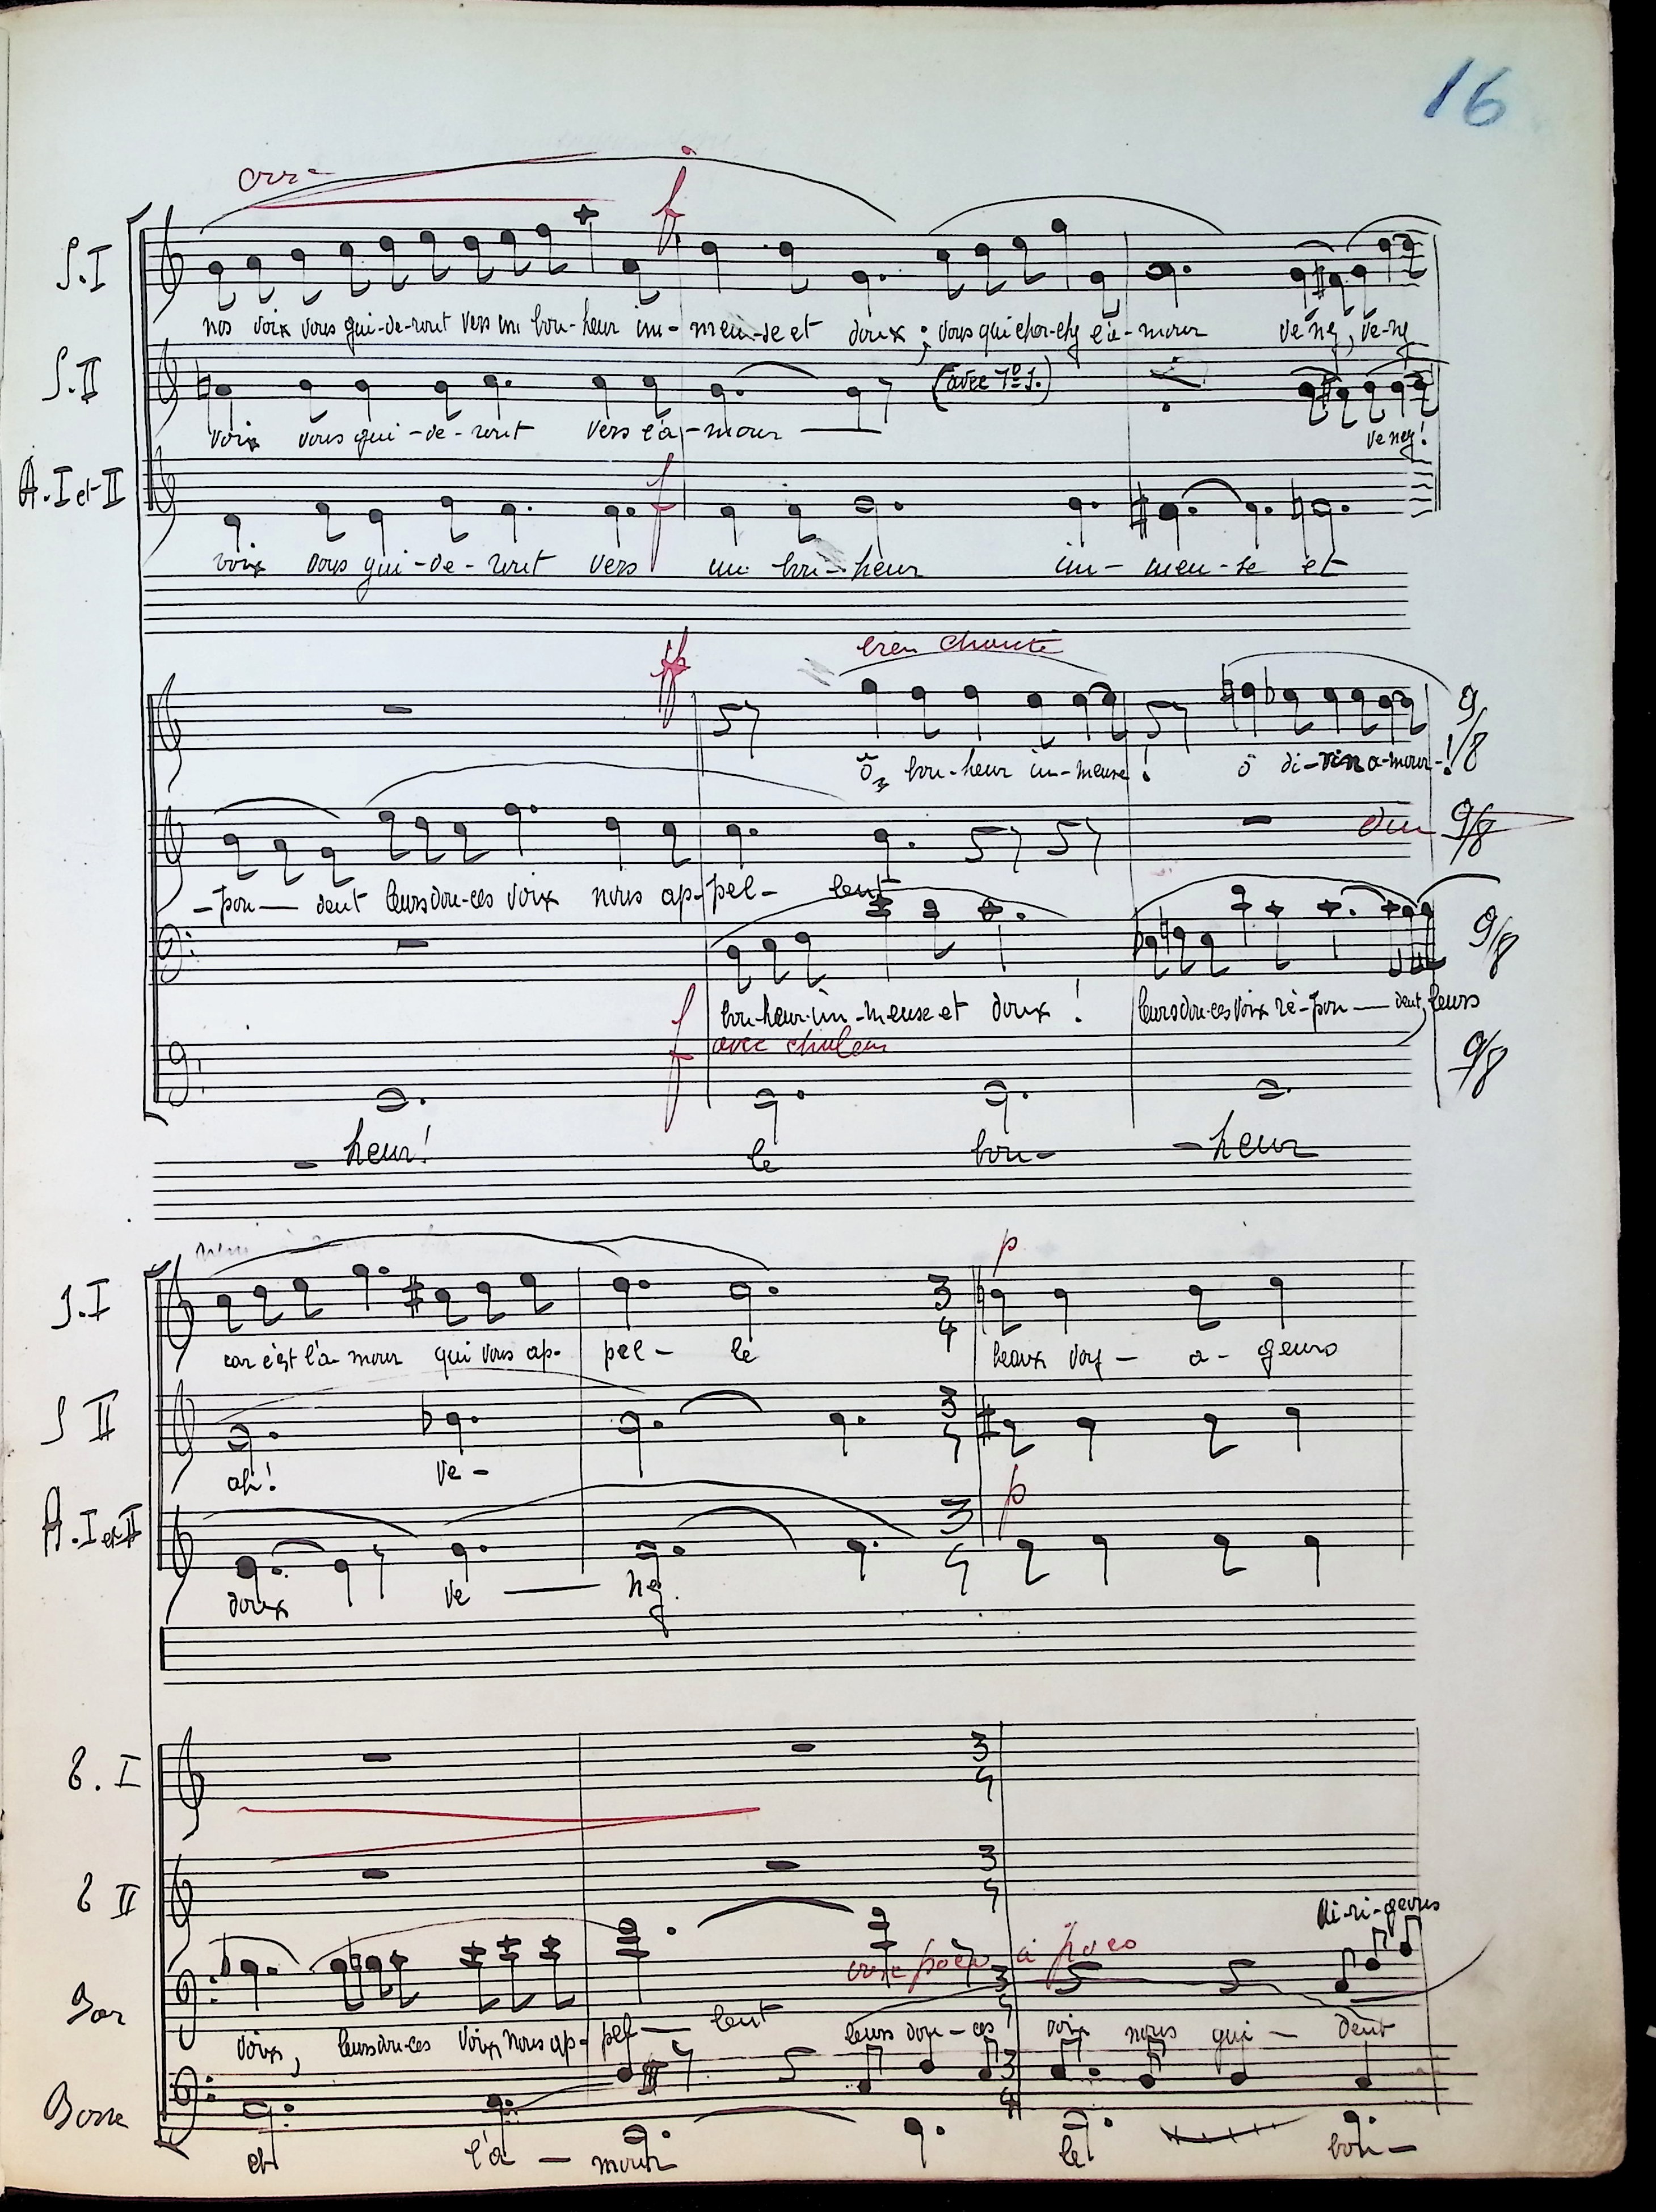 16
S.I
nos voix vous gui-de-ront vers un bon-heur im-men-se et doux ; vous qui cher-chez l'a-mour ve-nez, ve-nez
S.II
(avec 1º S.)
voix vous gui-de-ront vers l'a-mour
venez!
A.I et II
f f
voix vous gui-de-ront vers un bon-heur im-men-se et
ff bien chanté
9/8
ô bon-heur im-mense! ô di-vin a-mour-!
dim 9/8
-pon-dent leurs dou-ces voix nous ap-pel-lent
9/8
bon-heur im-mense et doux! leurs dou-ces voix ré-pon-dent, leurs
f avec chaleur
9/8
-heur! le bon-heur
p
S.I
3 4
car c'est l'a-mour qui vous ap-pel-le beaux voy-a-geurs
S II
3 4
ah! ve-
p
A.I et II
3 4
doux ve-nez
t. I
3 4
t II
3 4
di-ri-geons
cresc poco à poco
Bar
3 4
voix, leurs dou-ces voix nous ap-pel-lent leurs dou-ces voix nous gui-dent
Basse
3 4
et l'a-mour le bon-